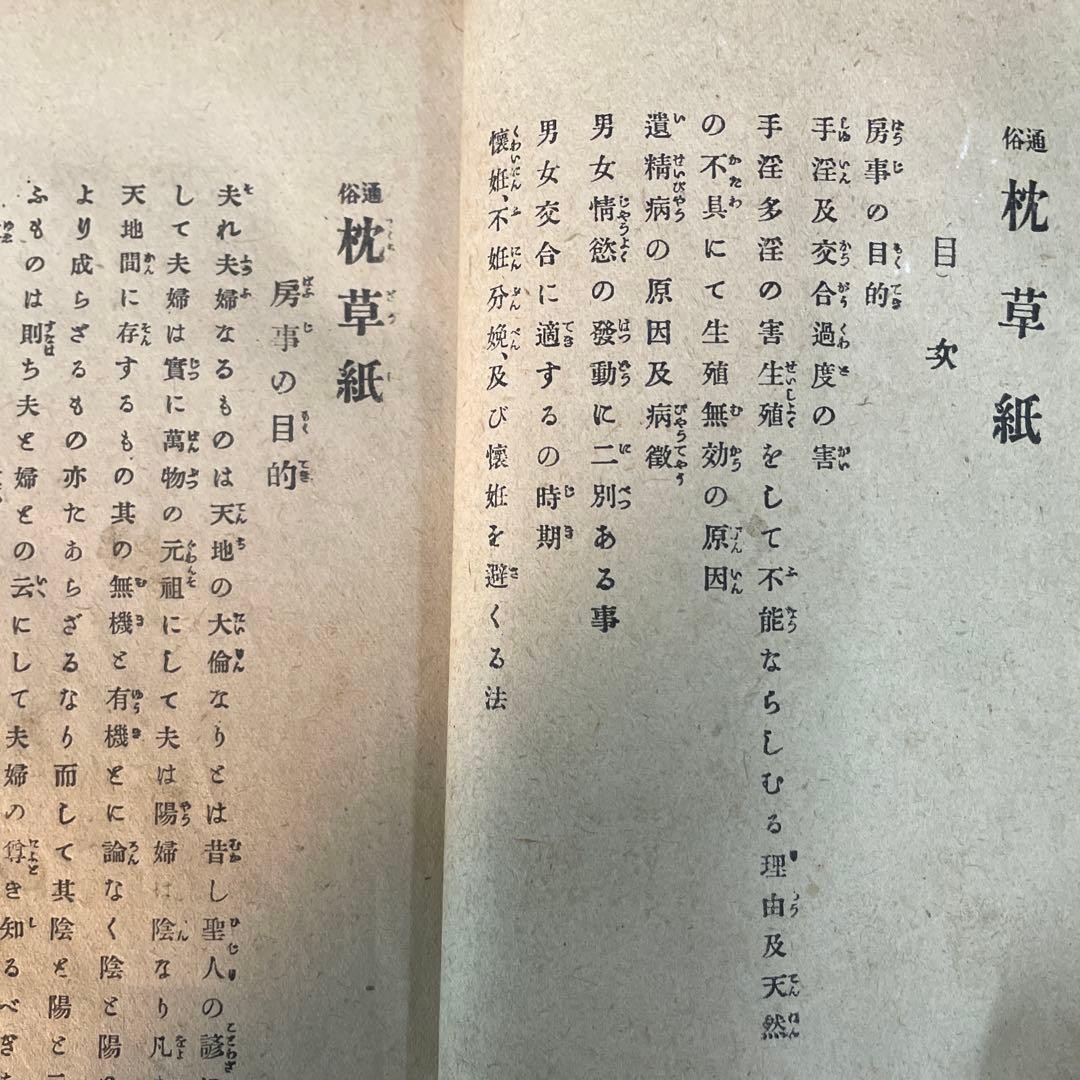 通俗 枕草紙
目次
房事の目的
手淫及交合過度の害
手淫多淫の害生殖をして不能ならしむる理由及天然
の不具にて生殖無効の原因
遺精病の原因及病徴
男女情慾の發動に二別ある事
男女交合に適するの時期
懷姙、不姙分娩、及び懷姙を避くる法
通俗 枕草紙
房事の目的
夫れ夫婦なるものは天地の大倫なりとは昔し聖人の諺に
して夫婦は實に萬物の元祖にして夫は陽婦は陰なり凡
天地間に存するもの其の無機と有機とに論なく陰と陽
より成らざるもの亦たあらざるなり而して其陰と陽と
ふものは則ち夫と婦との云にして夫婦の尊き知るべき